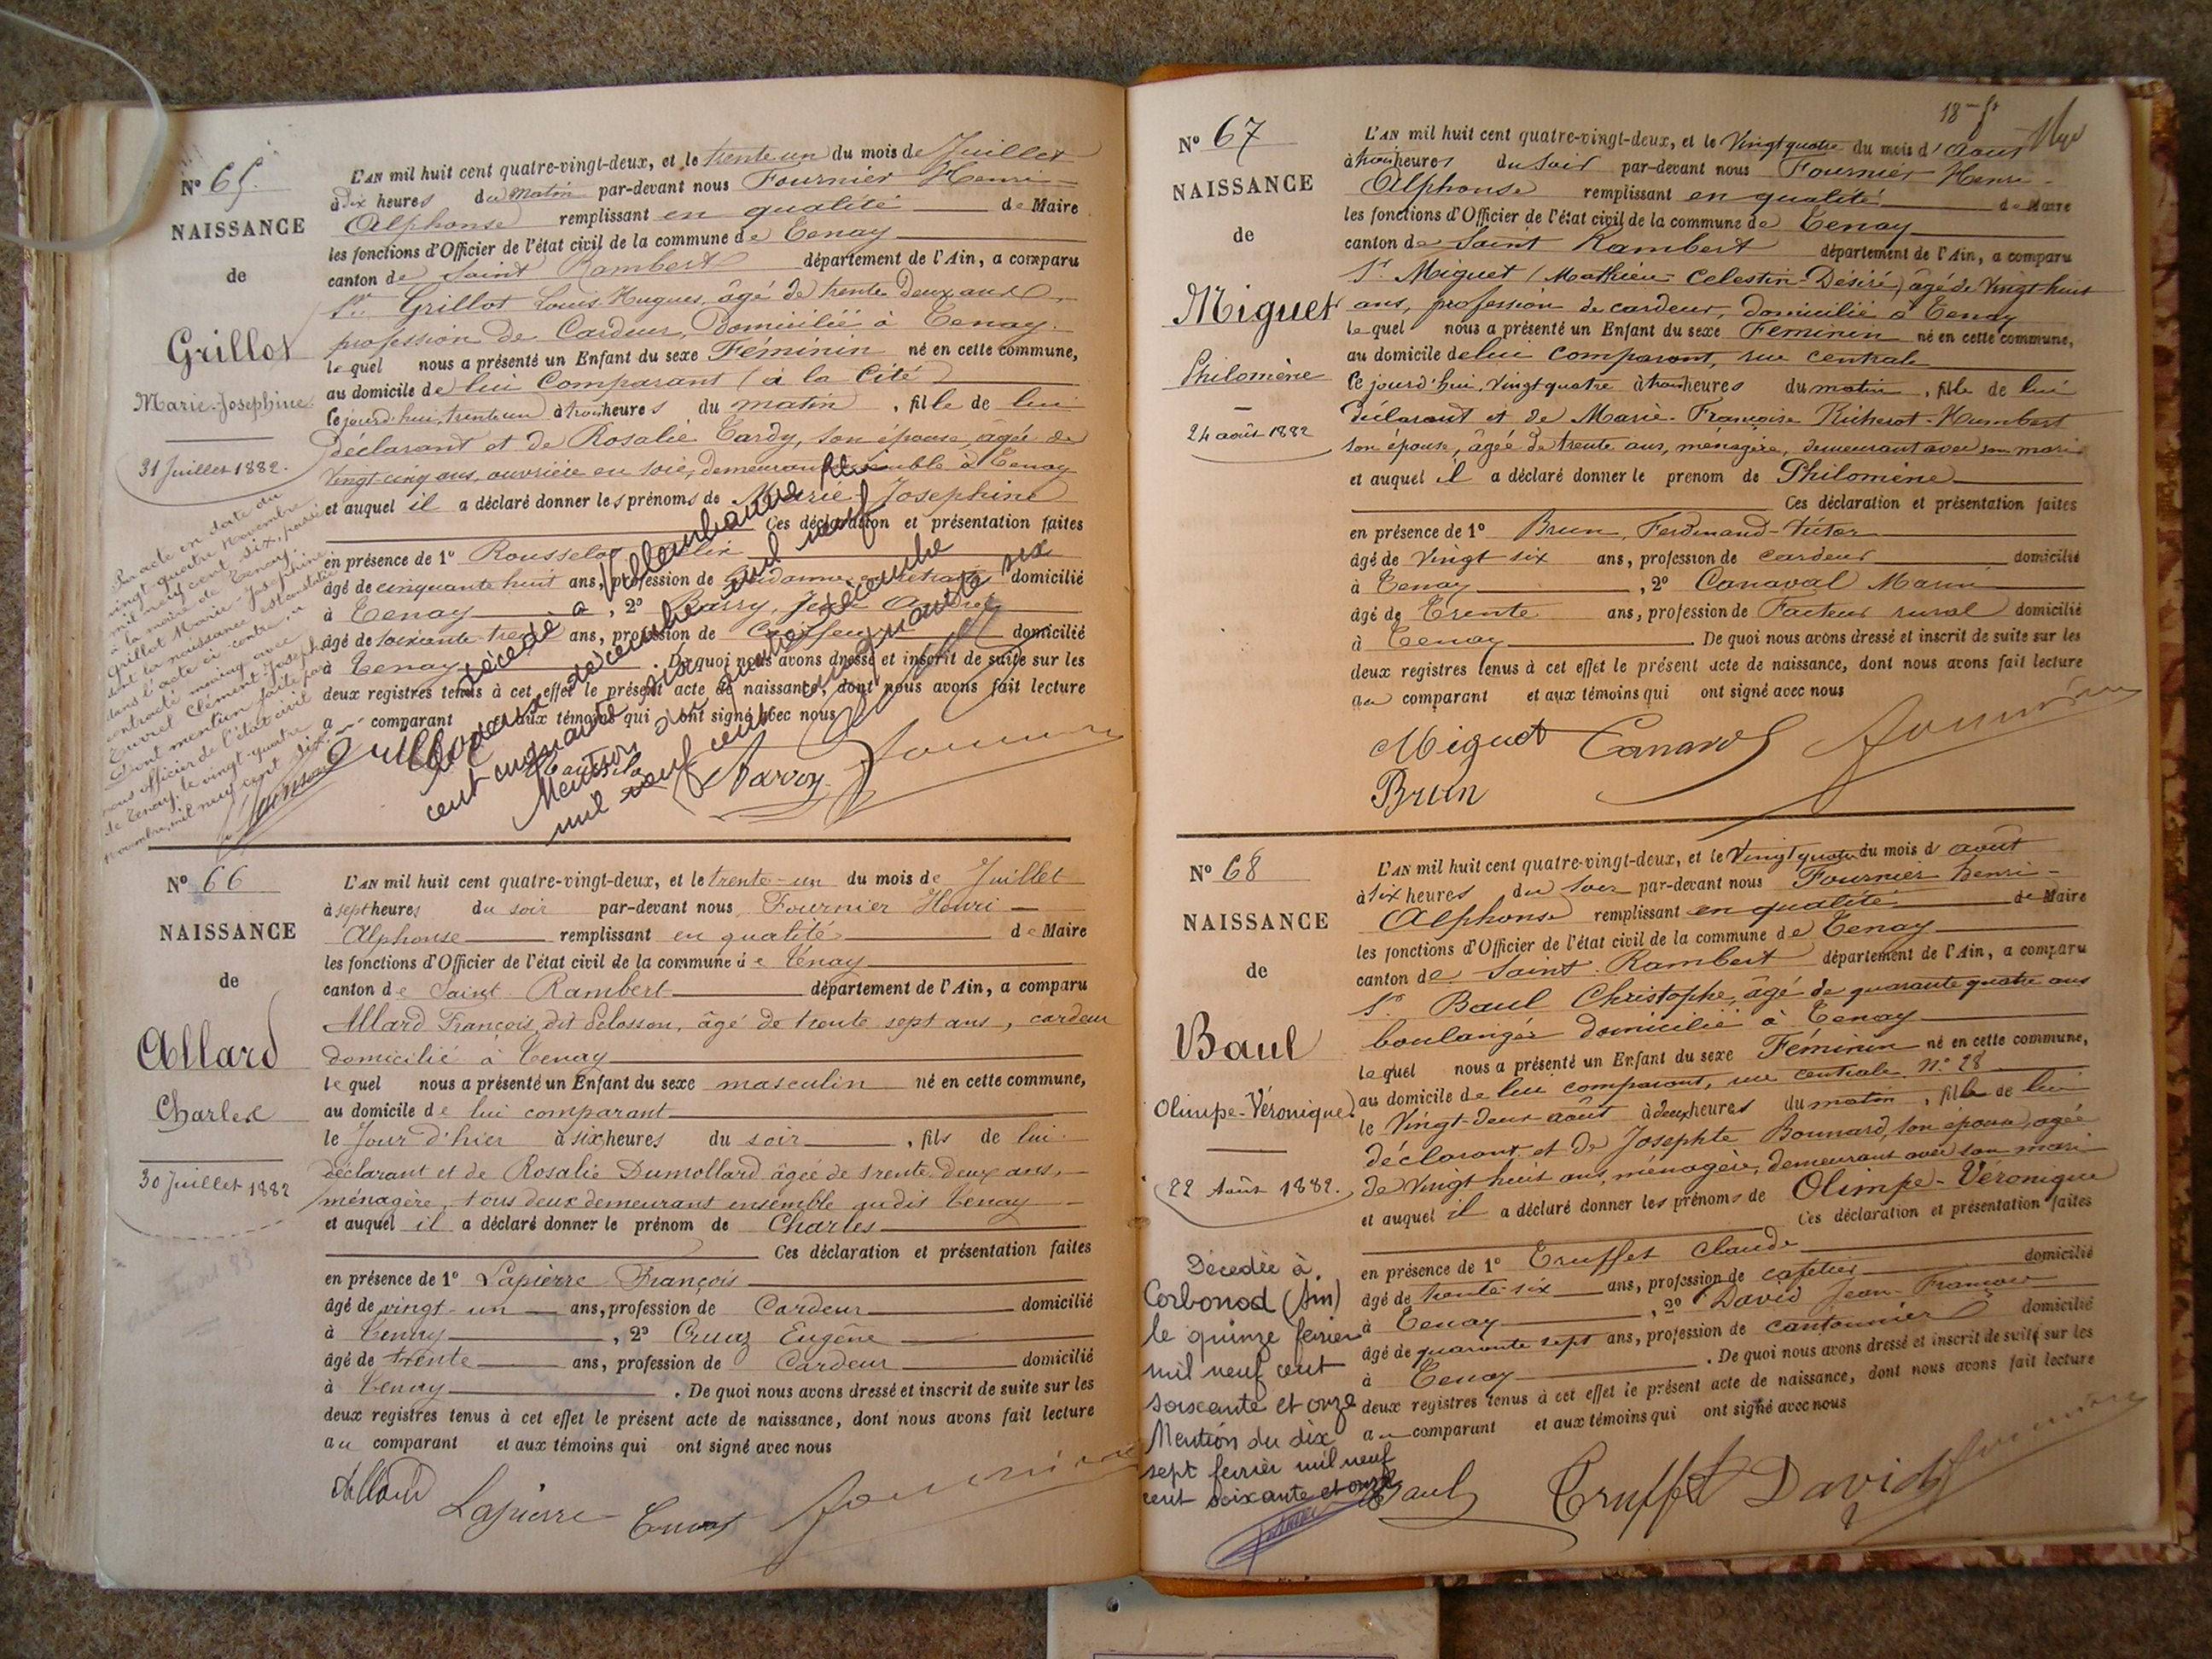 N° 65.
NAISSANCE
de
Grillot
Marie-Josephine
31 Juillet 1882.
Par acte en date du
vingt quatre Novembre
mil neuf cent dix, passé
à la mairie de Tenay,
Grillot Marie-Josephine
dont la naissance est constatée
dans l'acte ci-contre, a
contracté mariage avec
Clément Joseph
Dont mention faite par
nous officier de l'état civil
de Tenay, le vingt-quatre
novembre mil neuf cent dix.
L'AN mil huit cent quatre-vingt-deux, et le trente un du mois de Juillet
à dix heures du Matin par-devant nous Fournier Henri
Alphonse remplissant en qualité de Maire
les fonctions d'Officier de l'état civil de la commune de Tenay
canton de Saint Rambert département de l'Ain, a comparu
Sr. Grillot Louis Hugues, âgé de trente deux ans
profession de Cardeur, domicilié à Tenay.
lequel nous a présenté un Enfant du sexe Féminin né en cette commune,
au domicile de lui Comparant (à la Cité)
le jourd'hui, trente un à trois heures du matin, fille de lui
déclarant et de Rosalie Tardy, son épouse, âgée de
vingt-cinq ans, ouvrière en soie, demeurant ensemble à Tenay
et auquel il a déclaré donner les prénoms de Marie Josephine
Ces déclaration et présentation faites
en présence de 1° Rousselot
âgé de cinquante huit ans, profession de Gendarme en retraite domicilié
à Tenay, 2° Barry, Jean
âgé de soixante-treize ans, profession de Coiffeur domicilié
à Tenay. De quoi nous avons dressé et inscrit de suite sur les
deux registres tenus à cet effet le présent acte de naissance, dont nous avons fait lecture
au comparant et aux témoins qui ont signé avec nous
Décédée à Villeurbanne
le deux décembre mil neuf
cent cinquante six
Mention du quatre décembre
mil neuf cent cinquante six
N° 66
NAISSANCE
de
Allard
Charles
30 Juillet 1882
L'AN mil huit cent quatre-vingt-deux, et le trente-un du mois de Juillet
à sept heures du soir par-devant nous Fournier Henri
Alphonse remplissant en qualité de Maire
les fonctions d'Officier de l'état civil de la commune de Tenay
canton de Saint Rambert département de l'Ain, a comparu
Allard François, dit Pelosson, âgé de trente sept ans, cardeur
domicilié à Tenay
lequel nous a présenté un Enfant du sexe masculin né en cette commune,
au domicile de lui comparant
le Jour d'hier à six heures du soir, fils de lui
déclarant et de Rosalie Dumollard âgée de trente deux ans,
ménagère, tous deux demeurant ensemble audit Tenay
et auquel il a déclaré donner le prénom de Charles
Ces déclaration et présentation faites
en présence de 1° Lapierre François
âgé de vingt-un ans, profession de Cardeur domicilié
à Tenay, 2° Cruaz Eugène
âgé de trente ans, profession de Cardeur domicilié
à Tenay. De quoi nous avons dressé et inscrit de suite sur les
deux registres tenus à cet effet le présent acte de naissance, dont nous avons fait lecture
au comparant et aux témoins qui ont signé avec nous
Allard Lapierre Cruaz Fournier
N° 67
NAISSANCE
de
Miguet
Philomène
24 août 1882
L'AN mil huit cent quatre-vingt-deux, et le Vingt quatre du mois d'Aout
à trois heures du soir par-devant nous Fournier Henri
Alphonse remplissant en qualité de Maire
les fonctions d'Officier de l'état civil de la commune de Tenay
canton de Saint Rambert département de l'Ain, a comparu
Sr Miguet (Mathieu-Celestin-Désiré) âgé de Vingt-huit
ans, profession de cardeur, domicilié à Tenay
lequel nous a présenté un Enfant du sexe Féminin né en cette commune,
au domicile de lui comparant, rue centrale
le jourd'hui, Vingt quatre à trois heures du matin, fille de lui
déclarant et de Marie-Françoise Humbert
son épouse, âgée de trente ans, ménagère, demeurant avec son mari
et auquel il a déclaré donner le prenom de Philomène
Ces déclaration et présentation faites
en présence de 1° Brun, Ferdinand-Victor
âgé de Vingt six ans, profession de cardeur domicilié
à Tenay, 2° Canaval Marin
âgé de Trente ans, profession de Facteur rural domicilié
à Tenay De quoi nous avons dressé et inscrit de suite sur les
deux registres tenus à cet effet le présent acte de naissance, dont nous avons fait lecture
au comparant et aux témoins qui ont signé avec nous
Miguet Canaval Fournier
Brun
N° 68
NAISSANCE
de
Baul
Olimpe-Véronique
22 Août 1882.
Décédée à
Corbonod (Ain)
le quinze fevrier
mil neuf cent
soixante et onze
Mention du dix
sept fevrier mil neuf
cent soixante et onze
L'AN mil huit cent quatre-vingt-deux, et le Vingt quatre du mois d'aout
à six heures du soir par-devant nous Fournier henri
Alphonse remplissant en qualité de Maire
les fonctions d'Officier de l'état civil de la commune de Tenay
canton de Saint Rambert département de l'Ain, a comparu
Sr. Baul Christophe, âgé de quarante quatre ans
boulanger domicilié à Tenay
lequel nous a présenté un Enfant du sexe Féminin né en cette commune,
au domicile de lui comparant, rue centrale N° 28
le Vingt-deux août à deux heures du matin, fille de lui
déclarant et de Josephte Bonnard, son épouse, agée
de Vingt huit ans, ménagère, demeurant avec son mari
et auquel il a déclaré donner les prénoms de Olimpe-Véronique
Ces déclaration et présentation faites
en présence de 1° Truffet Claude
âgé de trente-six ans, profession de cafetier domicilié
à Tenay, 2° David Jean-François
âgé de quarante sept ans, profession de cantonnier domicilié
à Tenay. De quoi nous avons dressé et inscrit de suite sur les
deux registres tenus à cet effet le présent acte de naissance, dont nous avons fait lecture
au comparant et aux témoins qui ont signé avec nous
Baul Truffet David Fournier